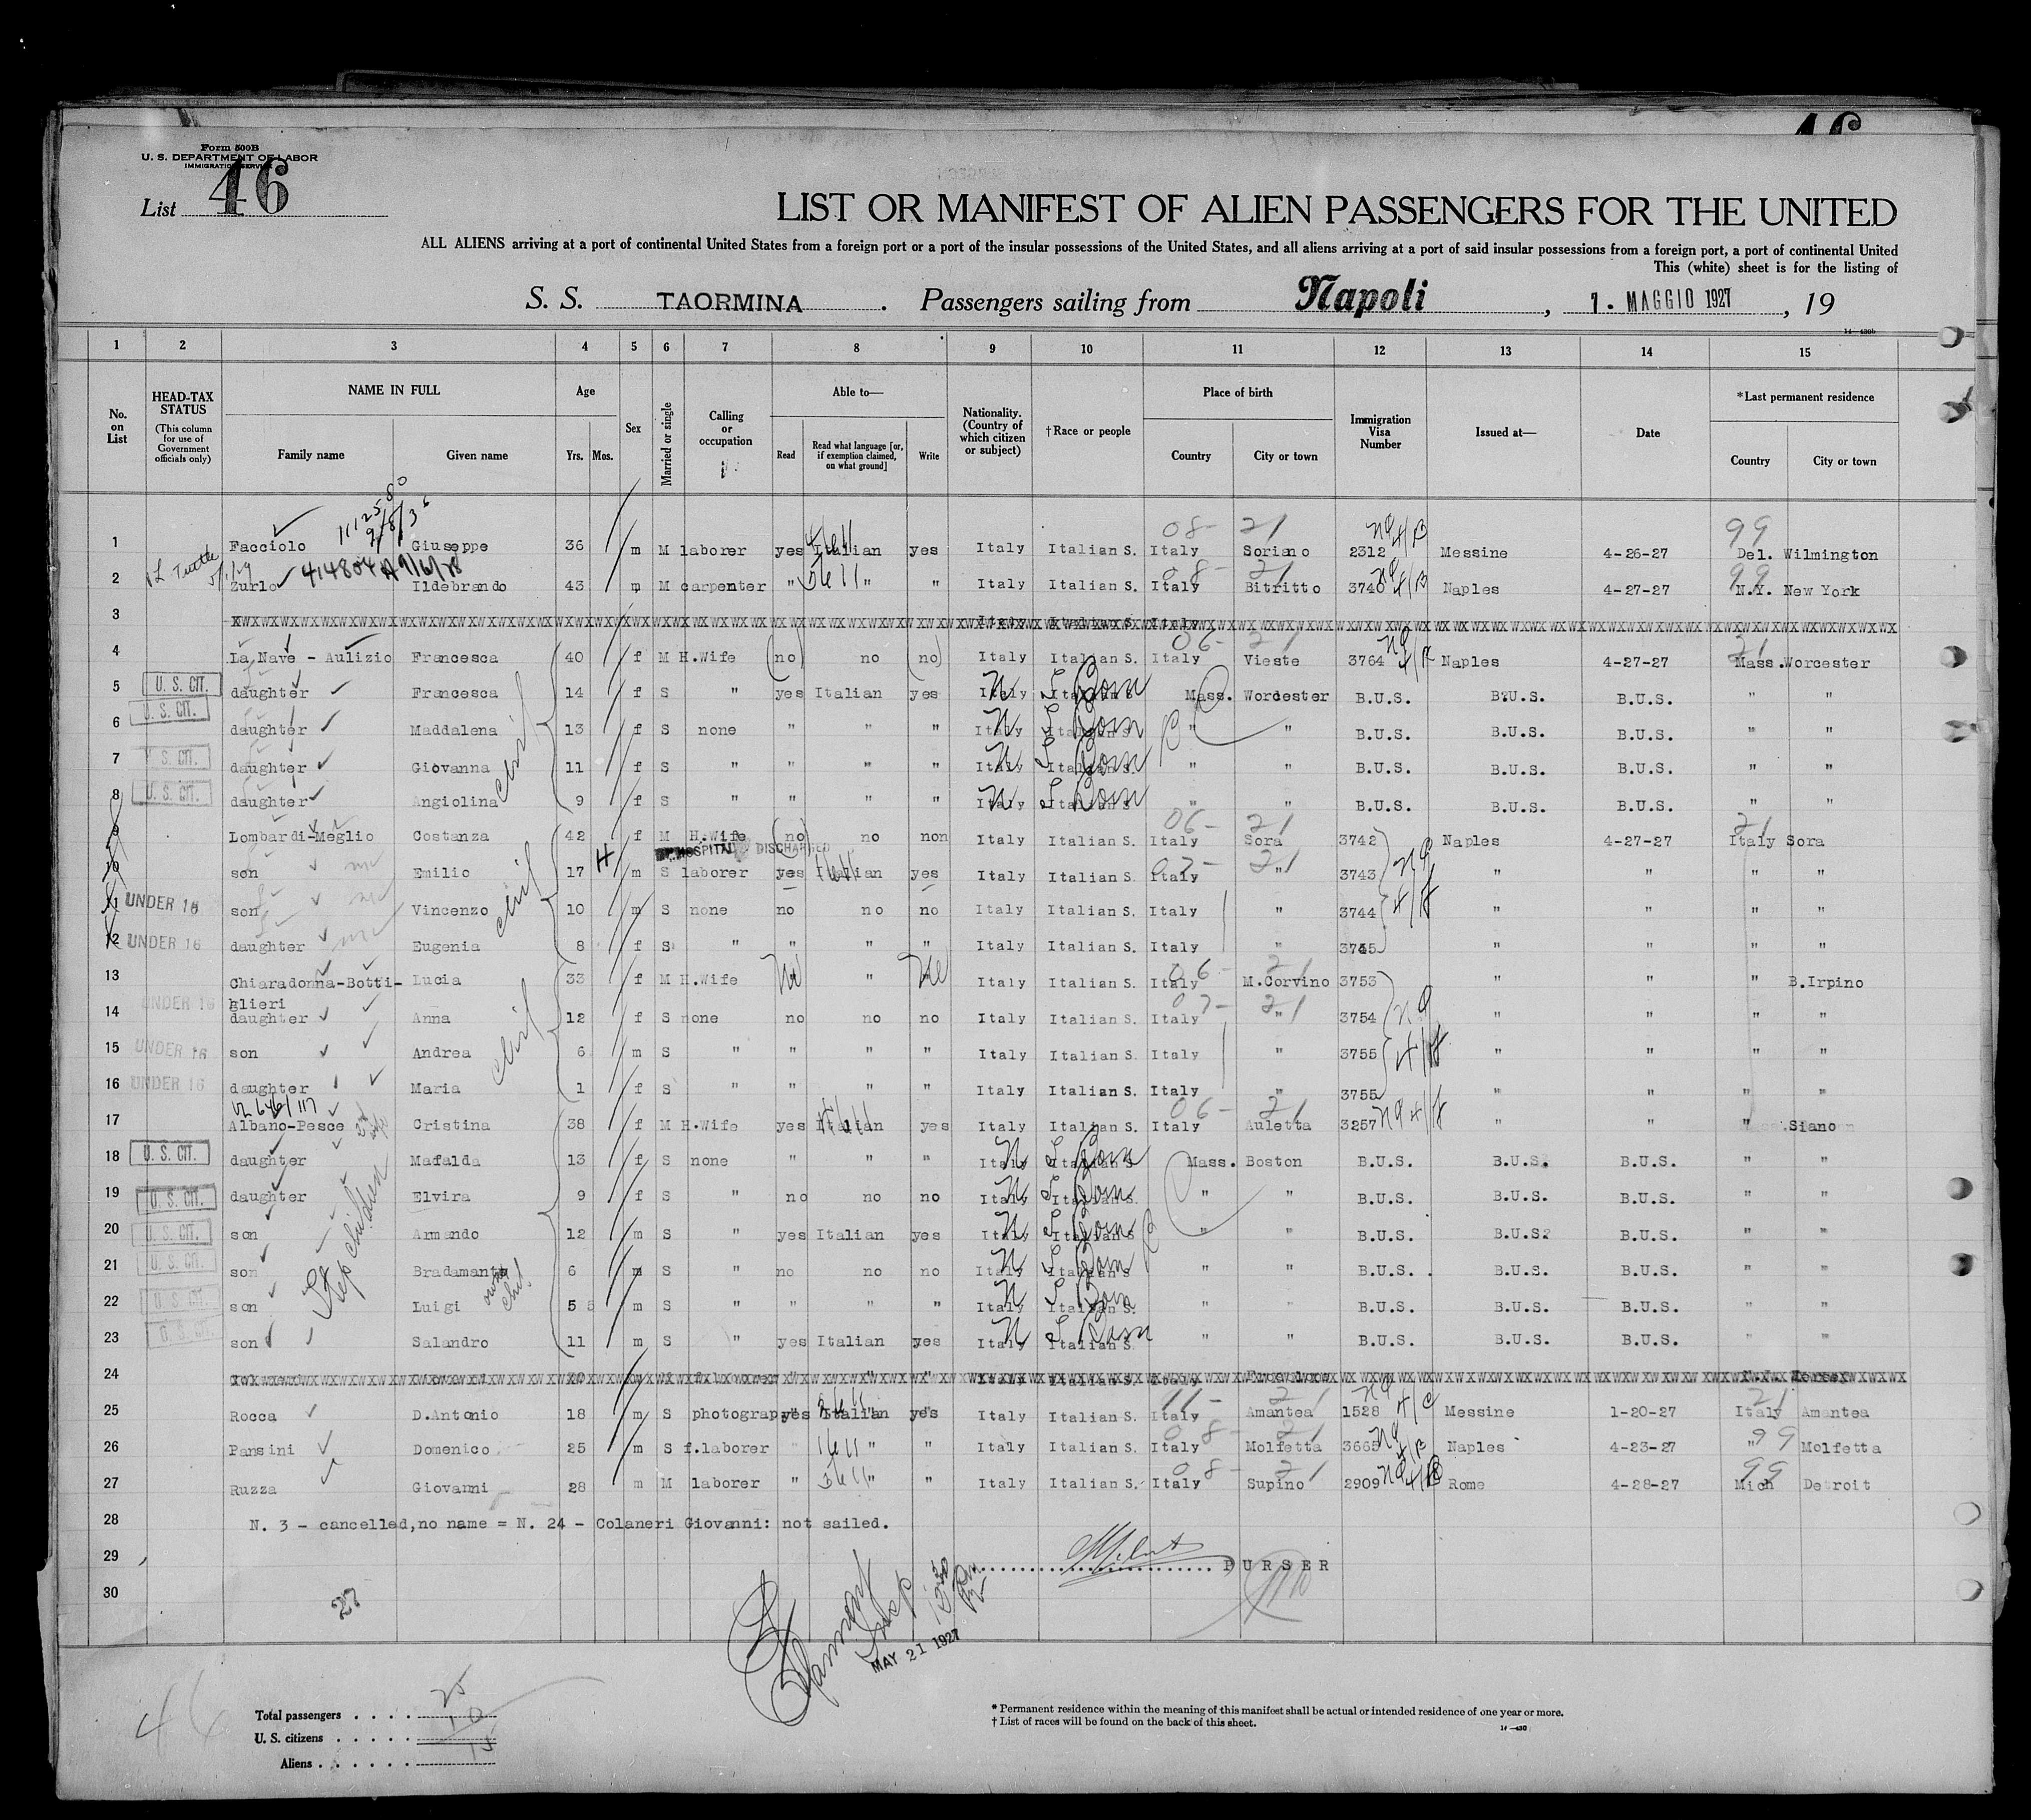 46
Form 500B
U. S. DEPARTMENT OF LABOR
IMMIGRATION SERVICE
List 46
LIST OR MANIFEST OF ALIEN PASSENGERS FOR THE UNITED
ALL ALIENS arriving at a port of continental United States from a foreign port or a port of the insular possessions of the United States, and all aliens arriving at a port of said insular possessions from a foreign port, a port of continental United
This (white) sheet is for the listing of
S. S. TAORMINA. Passengers sailing from Napoli, 7. MAGGIO 1927, 19
14—430b
1 2 3 4 5 6 7 8 9 10 11 12 13 14 15
No. on List
HEAD-TAX STATUS (This column for use of Government officials only)
NAME IN FULL Family name Given name
Age Yrs. Mos.
Sex
Married or single
Calling or occupation
Able to— Read Read what language [or, if exemption claimed, on what ground] Write
Nationality. (Country of which citizen or subject)
†Race or people
Place of birth Country City or town
Immigration Visa Number
Issued at—
Date
*Last permanent residence Country City or town
08- 21 99
1 Facciolo Giuseppe 36 m M laborer yes Italian yes Italy Italian S. Italy Soriano 2312 Messine 4-26-27 Del. Wilmington
08- 21 99
2 Zurlo Ildebrando 43 m M carpenter " " " Italy Italian S. Italy Bitritto 3740 Naples 4-27-27 N.Y. New York
3 Italy Italian S. Italy
06- 21 21
4 La Nave - Aulizio Francesca 40 f M H.Wife (no) no (no) Italy Italian S. Italy Vieste 3764 Naples 4-27-27 Mass. Worcester
5 U. S. CIT. daughter Francesca 14 f S " yes Italian yes Italy Italian S. Mass. Worcester B.U.S. B.U.S. B.U.S. " "
6 U. S. CIT. daughter Maddalena 13 f S none " " " Italy Italian S. " " B.U.S. B.U.S. B.U.S. " "
7 U. S. CIT. daughter Giovanna 11 f S " " " " Italy Italian S. " " B.U.S. B.U.S. B.U.S. " "
8 U. S. CIT. daughter Angiolina 9 f S " " " " Italy Italian S. " " B.U.S. B.U.S. B.U.S. " "
06- 21 21
9 Lombardi-Meglio Costanza 42 f M H.Wife (no) no non Italy Italian S. Italy Sora 3742 Naples 4-27-27 Italy Sora
HOSPITAL DISCHARGED
07- 21
10 son Emilio 17 m S laborer yes Italian yes Italy Italian S. Italy " 3743 " " " "
11 UNDER 16 son Vincenzo 10 m S none no no no Italy Italian S. Italy " 3744 " " " "
12 UNDER 16 daughter Eugenia 8 f S " " " " Italy Italian S. Italy " 3745 " " " "
06- 21
13 Chiaradonna-Botti- Lucia 33 f M H.Wife " Italy Italian S. Italy M.Corvino 3753 " " " B.Irpino
glieri
07- 21
14 UNDER 16 daughter Anna 12 f S none no no no Italy Italian S. Italy " 3754 " " " "
15 UNDER 16 son Andrea 6 m S " " " " Italy Italian S. Italy " 3755 " " " "
16 UNDER 16 daughter Maria 1 f S " " " " Italy Italian S. Italy " 3755 " " " "
06- 21
17 Albano-Pesce Cristina 38 f M H.Wife yes Italian yes Italy Italian S. Italy Auletta 3257 " " " Siano
18 U. S. CIT. daughter Mafalda 13 f S none " " " Italy Italian S. Mass. Boston B.U.S. B.U.S. B.U.S. " "
19 U. S. CIT. daughter Elvira 9 f S " no no no Italy Italian S. " " B.U.S. B.U.S. B.U.S. " "
20 U. S. CIT. son Armando 12 m S " yes Italian yes Italy Italian S " " B.U.S. B.U.S. B.U.S. " "
21 U. S. CIT. son Bradamante 6 m S " no no no Italy Italian S " " B.U.S. B.U.S. B.U.S. " "
22 U. S. CIT. son Luigi 5 m S " " " " Italy Italian S. " " B.U.S. B.U.S. B.U.S. " "
23 U. S. CIT. son Salandro 11 m S " yes Italian yes Italy Italian S. " " B.U.S. B.U.S. B.U.S. " "
Stepchildren
24
11- 21 21
25 Rocca D.Antonio 18 m S photograp yes Italian yes Italy Italian S. Italy Amantea 1528 Messine 1-20-27 Italy Amantea
08- 21 99
26 Pansini Domenico 25 m S f.laborer " " " Italy Italian S. Italy Molfetta 3665 Naples 4-23-27 " Molfetta
08- 21 99
27 Ruzza Giovanni 28 m M laborer " " " Italy Italian S. Italy Supino 2909 Rome 4-28-27 Mich Detroit
28 N. 3 - cancelled,no name = N. 24 - Colaneri Giovanni: not sailed.
29 PURSER
30
27
MAY 21 1927
46
Total passengers 25
U. S. citizens 10
Aliens 15
*Permanent residence within the meaning of this manifest shall be actual or intended residence of one year or more.
†List of races will be found on the back of this sheet.
14—430